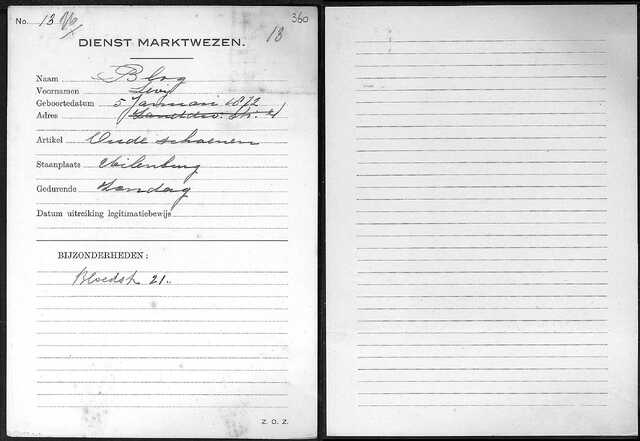 No. 13 360
13
DIENST MARKTWEZEN.
Naam Blog
Voornamen Levij
Geboortedatum 5 Januari 1872
Adres Zandstr. 4
Artikel Oude schoenen
Staanplaats Uilenburg
Gedurende Zondag
Datum uitreiking legitimatiebewijs
BIJZONDERHEDEN:
Bloedstr. 21.
Z. O. Z.